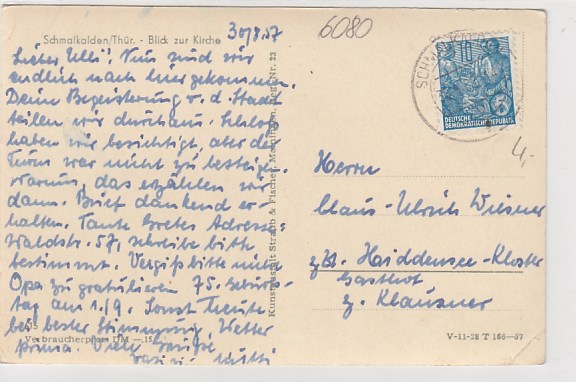 30/8.57
6080
Schmalkalden/Thür. - Blick zur Kirche
Lieber Ulli! Nun sind wir
endlich nach hier gekommen.
Deine Begeisterung v. d. Stadt
teilen wir durchaus. Schloß
haben wir besichtigt, aber der
Turm war nicht zu besteigen.
Warum, das erzählen wir
dann. Brief dankend er-
halten. Tante Gretes Adresse:
Waldstr. 57, schreibe bitte
bestimmt. Vergiß bitte nicht
Opa zu gratulieren 75. Geburts-
tag am 1./9. Sonst heute
bei bester Stimmung. Wetter
prima. Viele Grüße
Mutti
Verbraucherpreis DM -.15
Kunstanstalt Straub & Fischer, Meiningen
DEUTSCHE
DEMOKRATISCHE REPUBLIK
10
5
4,-
Herrn
Claus-Ulrich Wiesner
z.Zt. Hiddensee-Kloster
Gasthof
z. Klausner
V-11-28 T 166-57